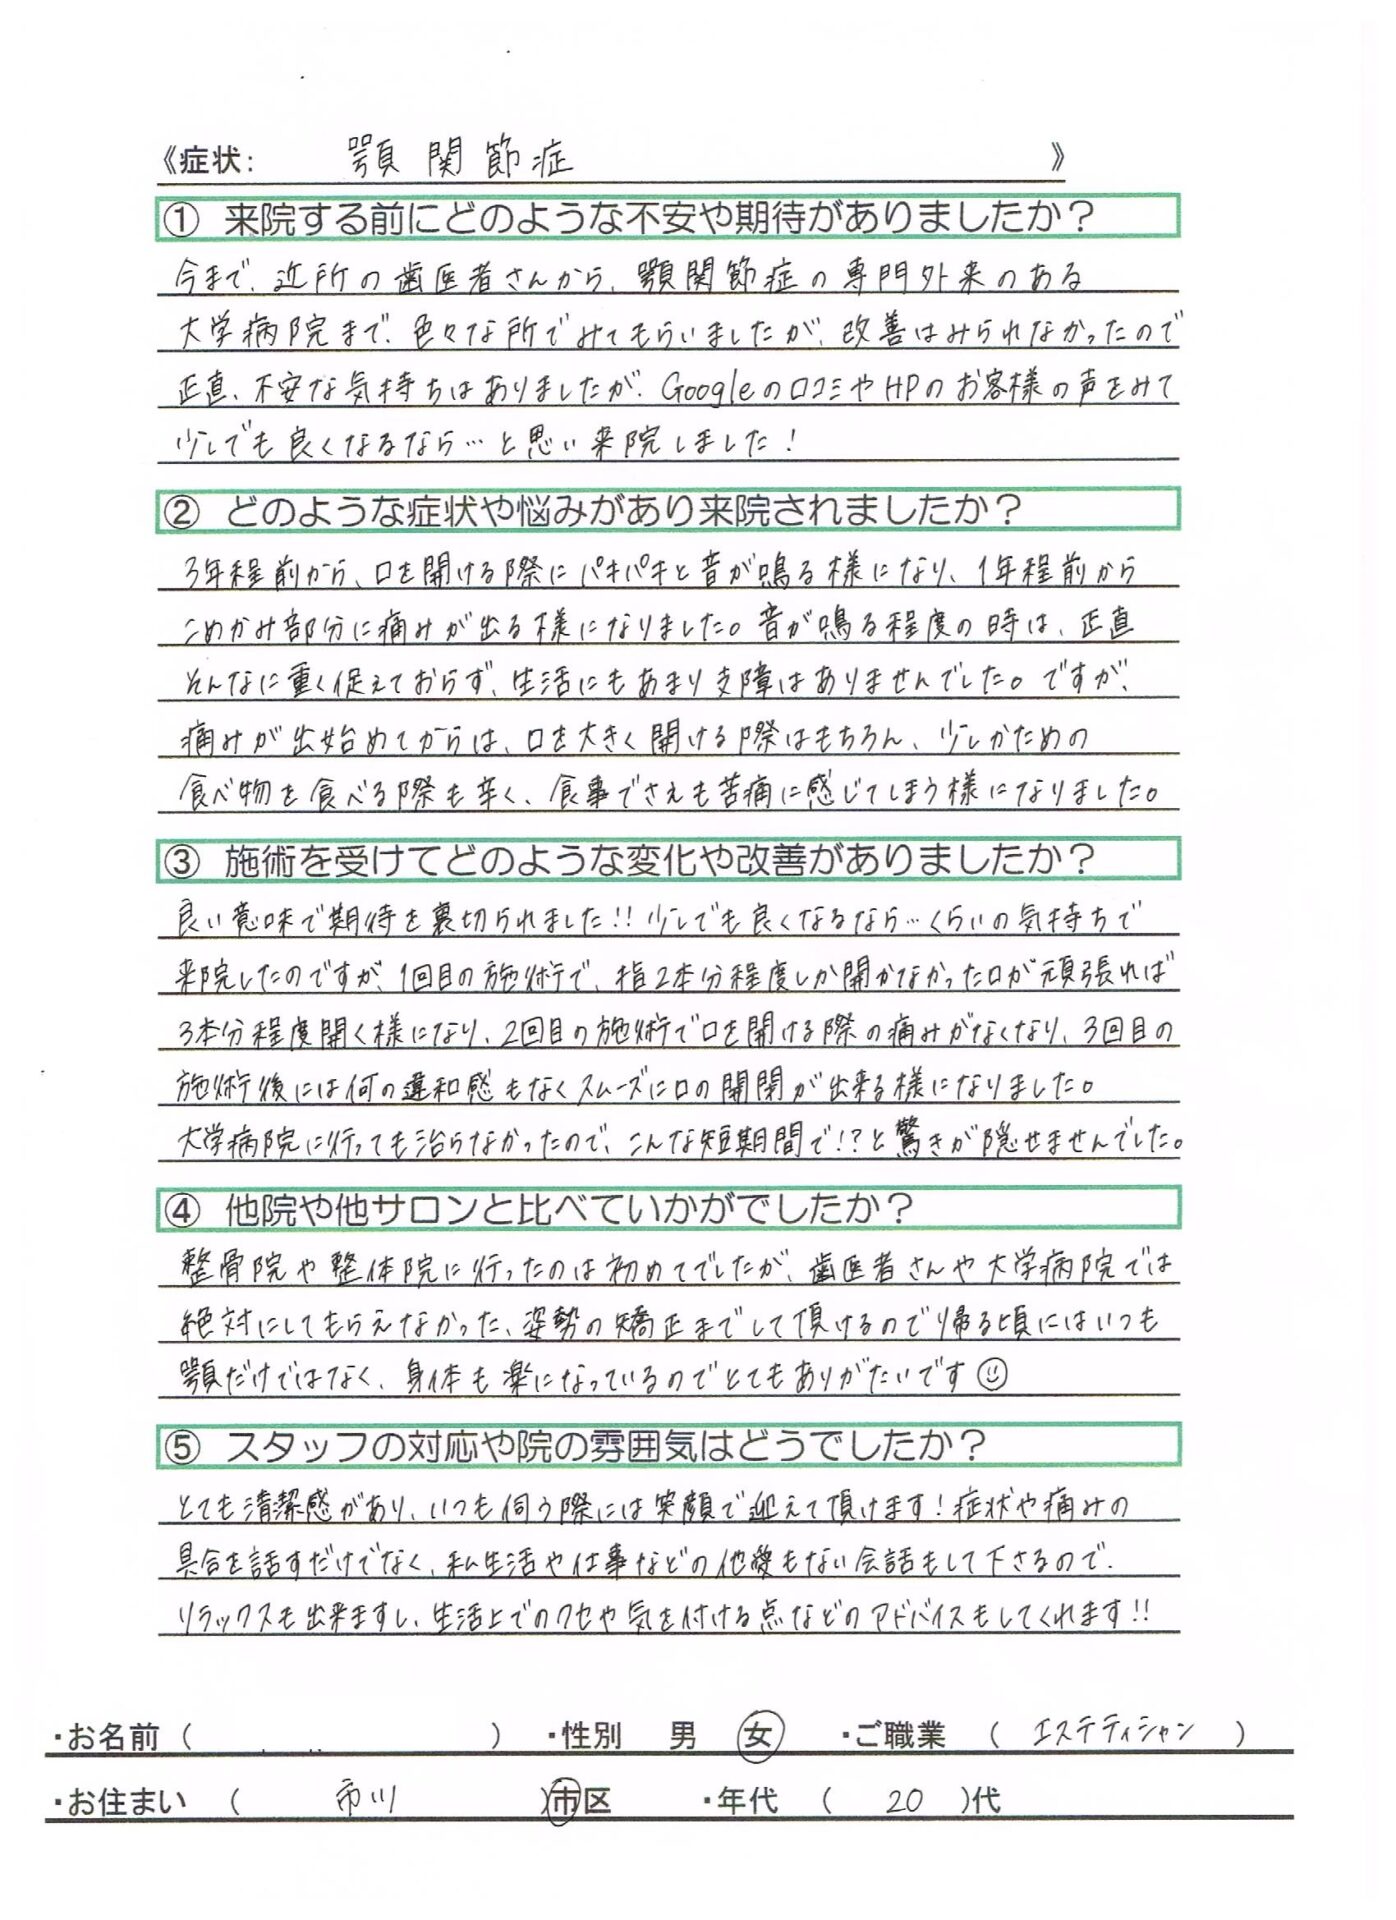 《症状: 顎関節症 》
① 来院する前にどのような不安や期待がありましたか？
今まで、近所の歯医者さんから、顎関節症の専門外来のある
大学病院まで、色々な所でみてもらいましたが、改善はみられなかったので
正直、不安な気持ちはありましたが、Googleの口コミやHPのお客様の声をみて
少しでも良くなるなら…と思い来院しました！
② どのような症状や悩みがあり来院されましたか？
3年程前から、口を開ける際にパキパキと音が鳴る様になり、1年程前から
こめかみ部分に痛みが出る様になりました。音が鳴る程度の時は、正直
そんなに重く促えておらず、生活にもあまり支障はありませんでした。ですが、
痛みが出始めてからは、口を大きく開ける際はもちろん、少しかための
食べ物を食べる際も辛く、食事でさえも苦痛に感じてしまう様になりました。
③ 施術を受けてどのような変化や改善がありましたか？
良い意味で期待を裏切られました!! 少しでも良くなるなら…くらいの気持ちで
来院したのですが、1回目の施術で、指2本分程度しか開かなかった口が頑張れば
3本分程度開く様になり、2回目の施術で口を開ける際の痛みがなくなり、3回目の
施術後には何の違和感もなくスムーズに口の開閉が出来る様になりました。
大学病院に行っても治らなかったので、こんな短期間で!?と驚きが隠せませんでした。
④ 他院や他サロンと比べていかがでしたか？
整骨院や整体院に行ったのは初めてでしたが、歯医者さんや大学病院では
絶対にしてもらえなかった、姿勢の矯正までして頂けるので帰る頃にはいつも
顎だけではなく、身体も楽になっているのでとてもありがたいです☺
⑤ スタッフの対応や院の雰囲気はどうでしたか？
とても清潔感があり、いつも伺う際には笑顔で迎えて頂けます！症状や痛みの
具合を話すだけでなく、私生活や仕事などの他愛もない会話もして下さるので、
リラックスも出来ますし、生活上でのクセや気を付ける点などのアドバイスもしてくれます!!
・お名前 （ ） ・性別 男 女 ・ご職業 （ エステティシャン ）
・お住まい （ 市川 ）市区 ・年代 （ 20 ）代